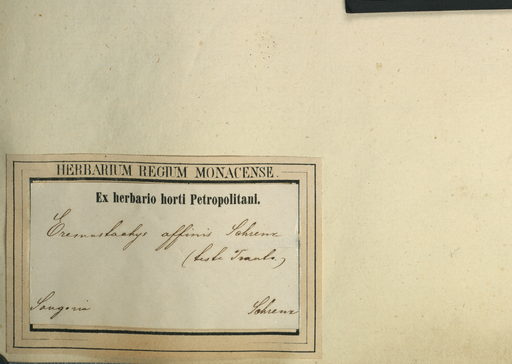 HERBARIUM REGIUM MONACENSE.
Ex herbario horti Petropolitani.
Eremostachys affinis Schrenk
(teste Trautv.)
Songoria Schrenk